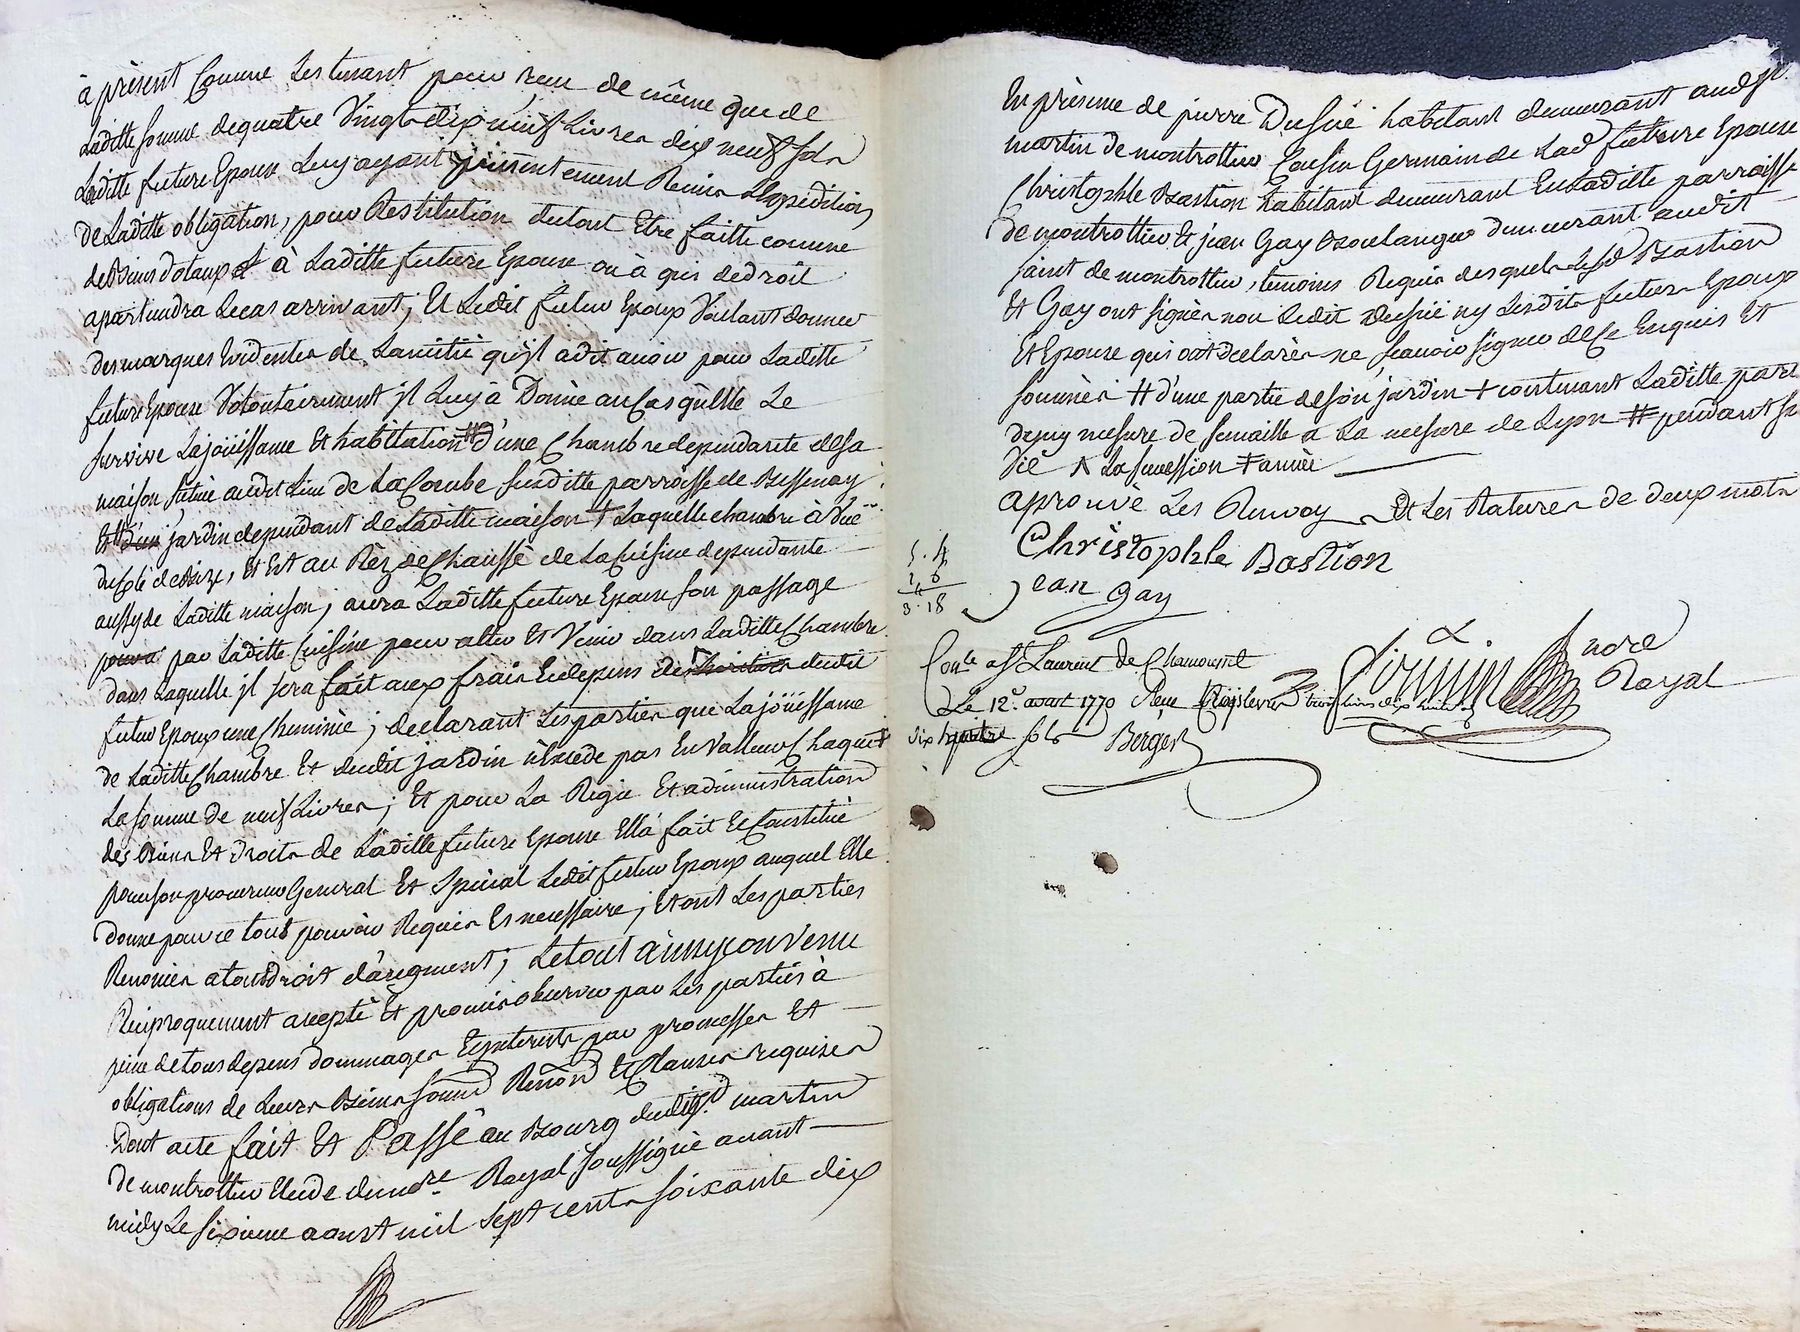 à présent Comme Les tenant pour reçu de même que de
Laditte somme de quatre Vingt dix neuf Livres dix neuf sols
Laditte future Epouse Luy ayant presentement Remis L'Expedition
de Laditte obligation, pour Restitution du tout Etre faitte comme
de Biens dotaux à Laditte future Epouse ou à qui de droit
apartiendra Le cas arrivant; Et Ledit futur Epoux Voulant donner
des marques Evidentes de Lamitié qu'jl a dit avoir pour Laditte
future Epouse Volontairement jl Luy à Donné au Cas qu'Elle Le
survive La joüissame Et habitation # d'une Chambre dependante de sa
maison, située audit Lieu de La Combe susditte parroisse de Bussenay
Et d'un jardin dependant de Laditte maison + Laquelle chambre à Vüe
du Coté de Bize, Et Est au Réz de Chaussé de La Cuisine dependante
aussy de Laditte maison; aura Laditte future Epouse son passage
pour a par Laditte Cuisine pour aller Et Venir dans Laditte Chambre
dans Laquelle jl sera fait aux frais Et depens des heritiers dudit
futur Epoux une Cheminée; declarant Les parties que La joüissame
de Laditte Chambre Et dudit jardin n'Excede pas En Valleur Chaque ‡
La somme de neuf Livres; Et pour La Regie Et administration
des Biens Et droits de Laditte future Epouse Ella fait Et Constitué
pour son procureur General Et Special Ledit futur Epoux auquel Elle
donne pour ce tout pouvoir Requis Et necessaire; Et ont Les parties
Renoncés a tout droit d'augment; Le tout ainsy convenu
Reciproquement accepté Et promis observer par Les parties à
peine de tous depens dommages Et jnterets par promesses Et
obligations de Leurs Biens soumd Renond Et Clauses requises
Dont acte fait Et Passé au Bourg dudit St martin
de montrottier Etude du nore Royal, soussigné avant
midy Le sixieme aoust mil sept cents soixante dix
En présence de pierre Dussué habitant demeurant aud st
martin de montrottier Cousin Germain de Lad future Epouse
Christophle Bastion habitant demeurant En Laditte parroisse
de montrottier Et jean Gay Boulanger demeurant audit
saint de montrottier, temoins Requis desquels Lesd Bastion
Et Gay ont signés non Ledit Dussué ny Lesdits futurs Epoux
Et Epouse qui ont declarés ne sçavoir signer de ce Enquis Et
sommés # d'une partie de son jardin + contenant Laditte part
demy mesure de semaille a La mesure de Lyon # pendant sa
Vie ^ La succession ‡ année
aprouvé Les Renvoy Et Les Ratures de deux mots
Christophle Bastion
5. 4
3. 18
Jean Gay
Firmin nore
Royal
Conle a St Laurent de Chamousset
Le 12e. aoust 1770 Reçu trois livres dix huit s
sols
Berger